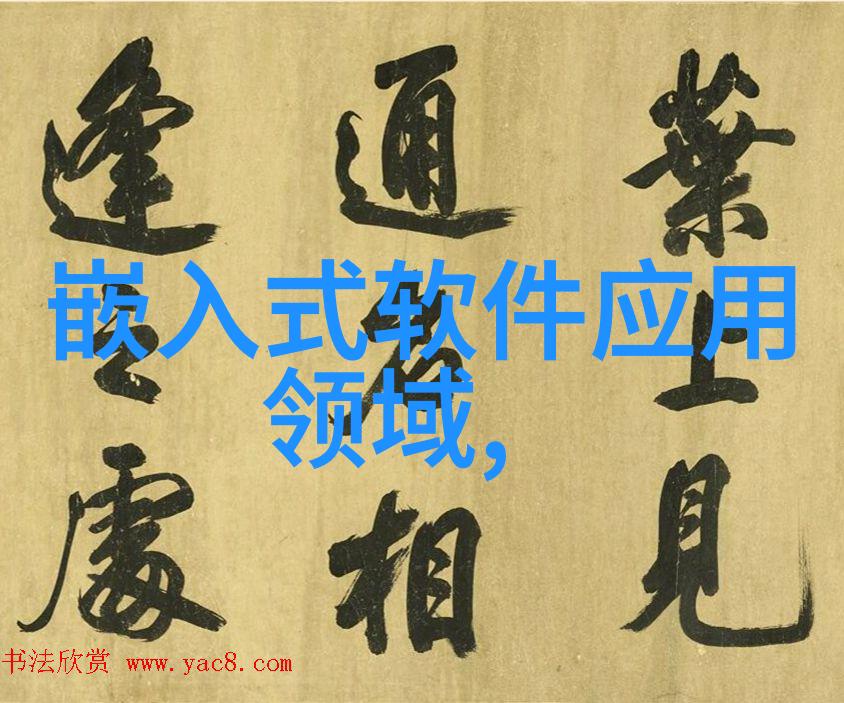 葉上見
通 相
逢之處
嵌入式软件应用
领域,
书法欣赏 www.yac8.com